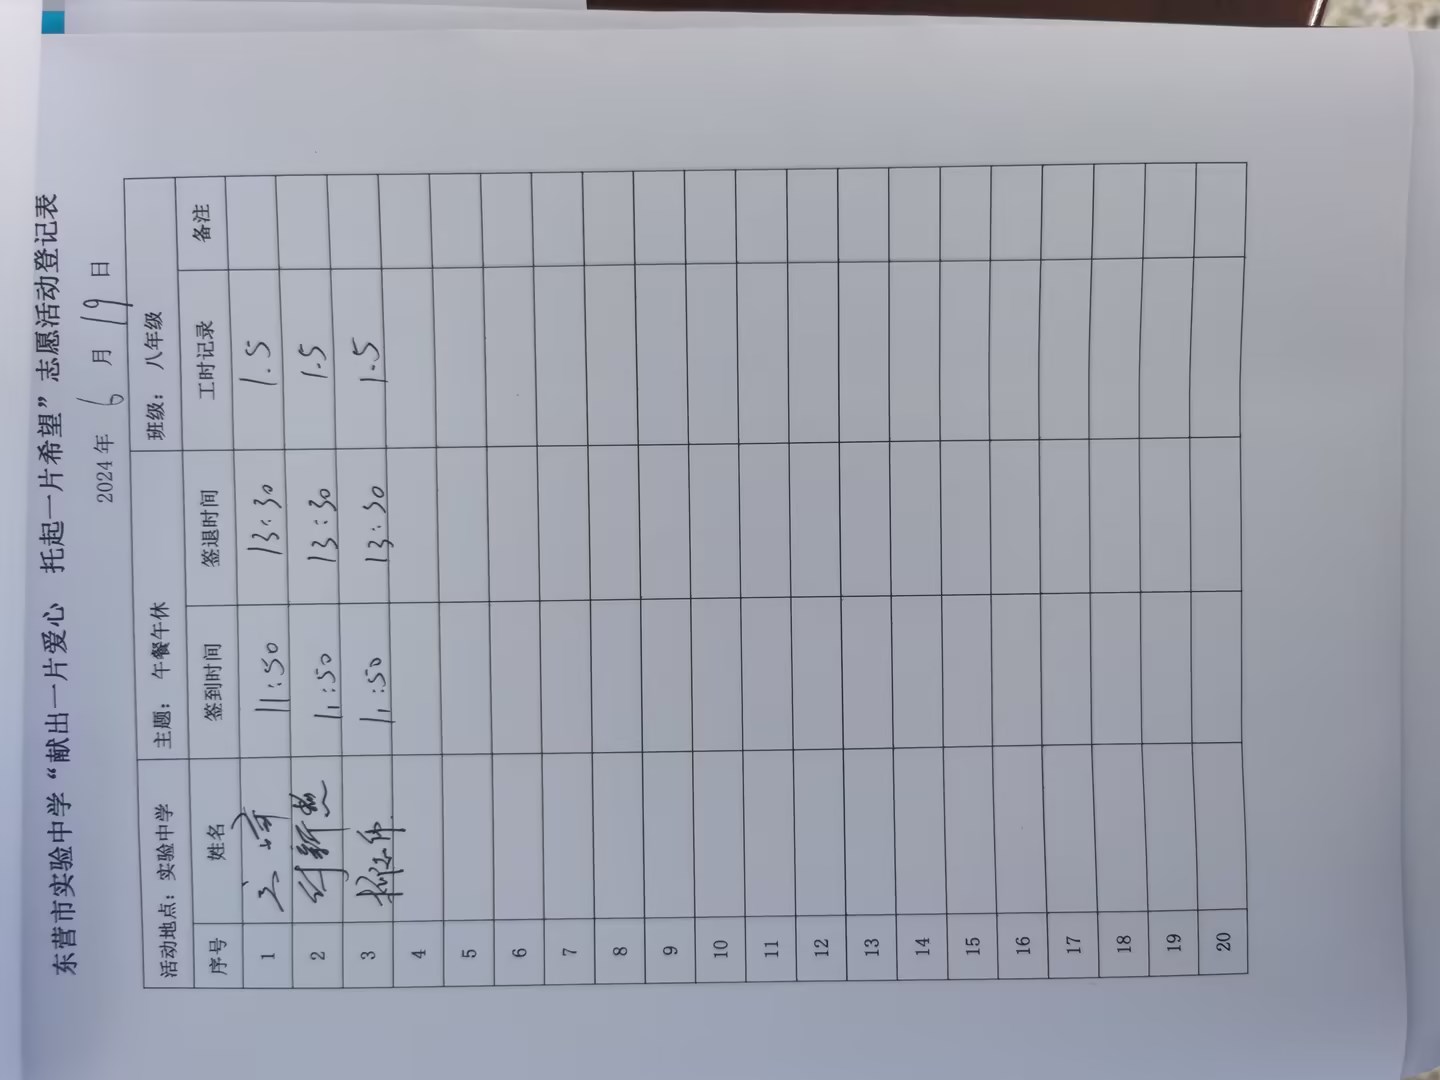 东营市实验中学“献出一片爱心 托起一片希望”志愿活动登记表
2024年 6 月 19 日
活动地点：实验中学 主题： 午餐午休 班级： 八年级
序号 姓名 签到时间 签退时间 工时记录 备注
1 11:50 13:30 1.5
2 11:50 13:30 1.5
3 11:50 13:30 1.5
4
5
6
7
8
9
10
11
12
13
14
15
16
17
18
19
20